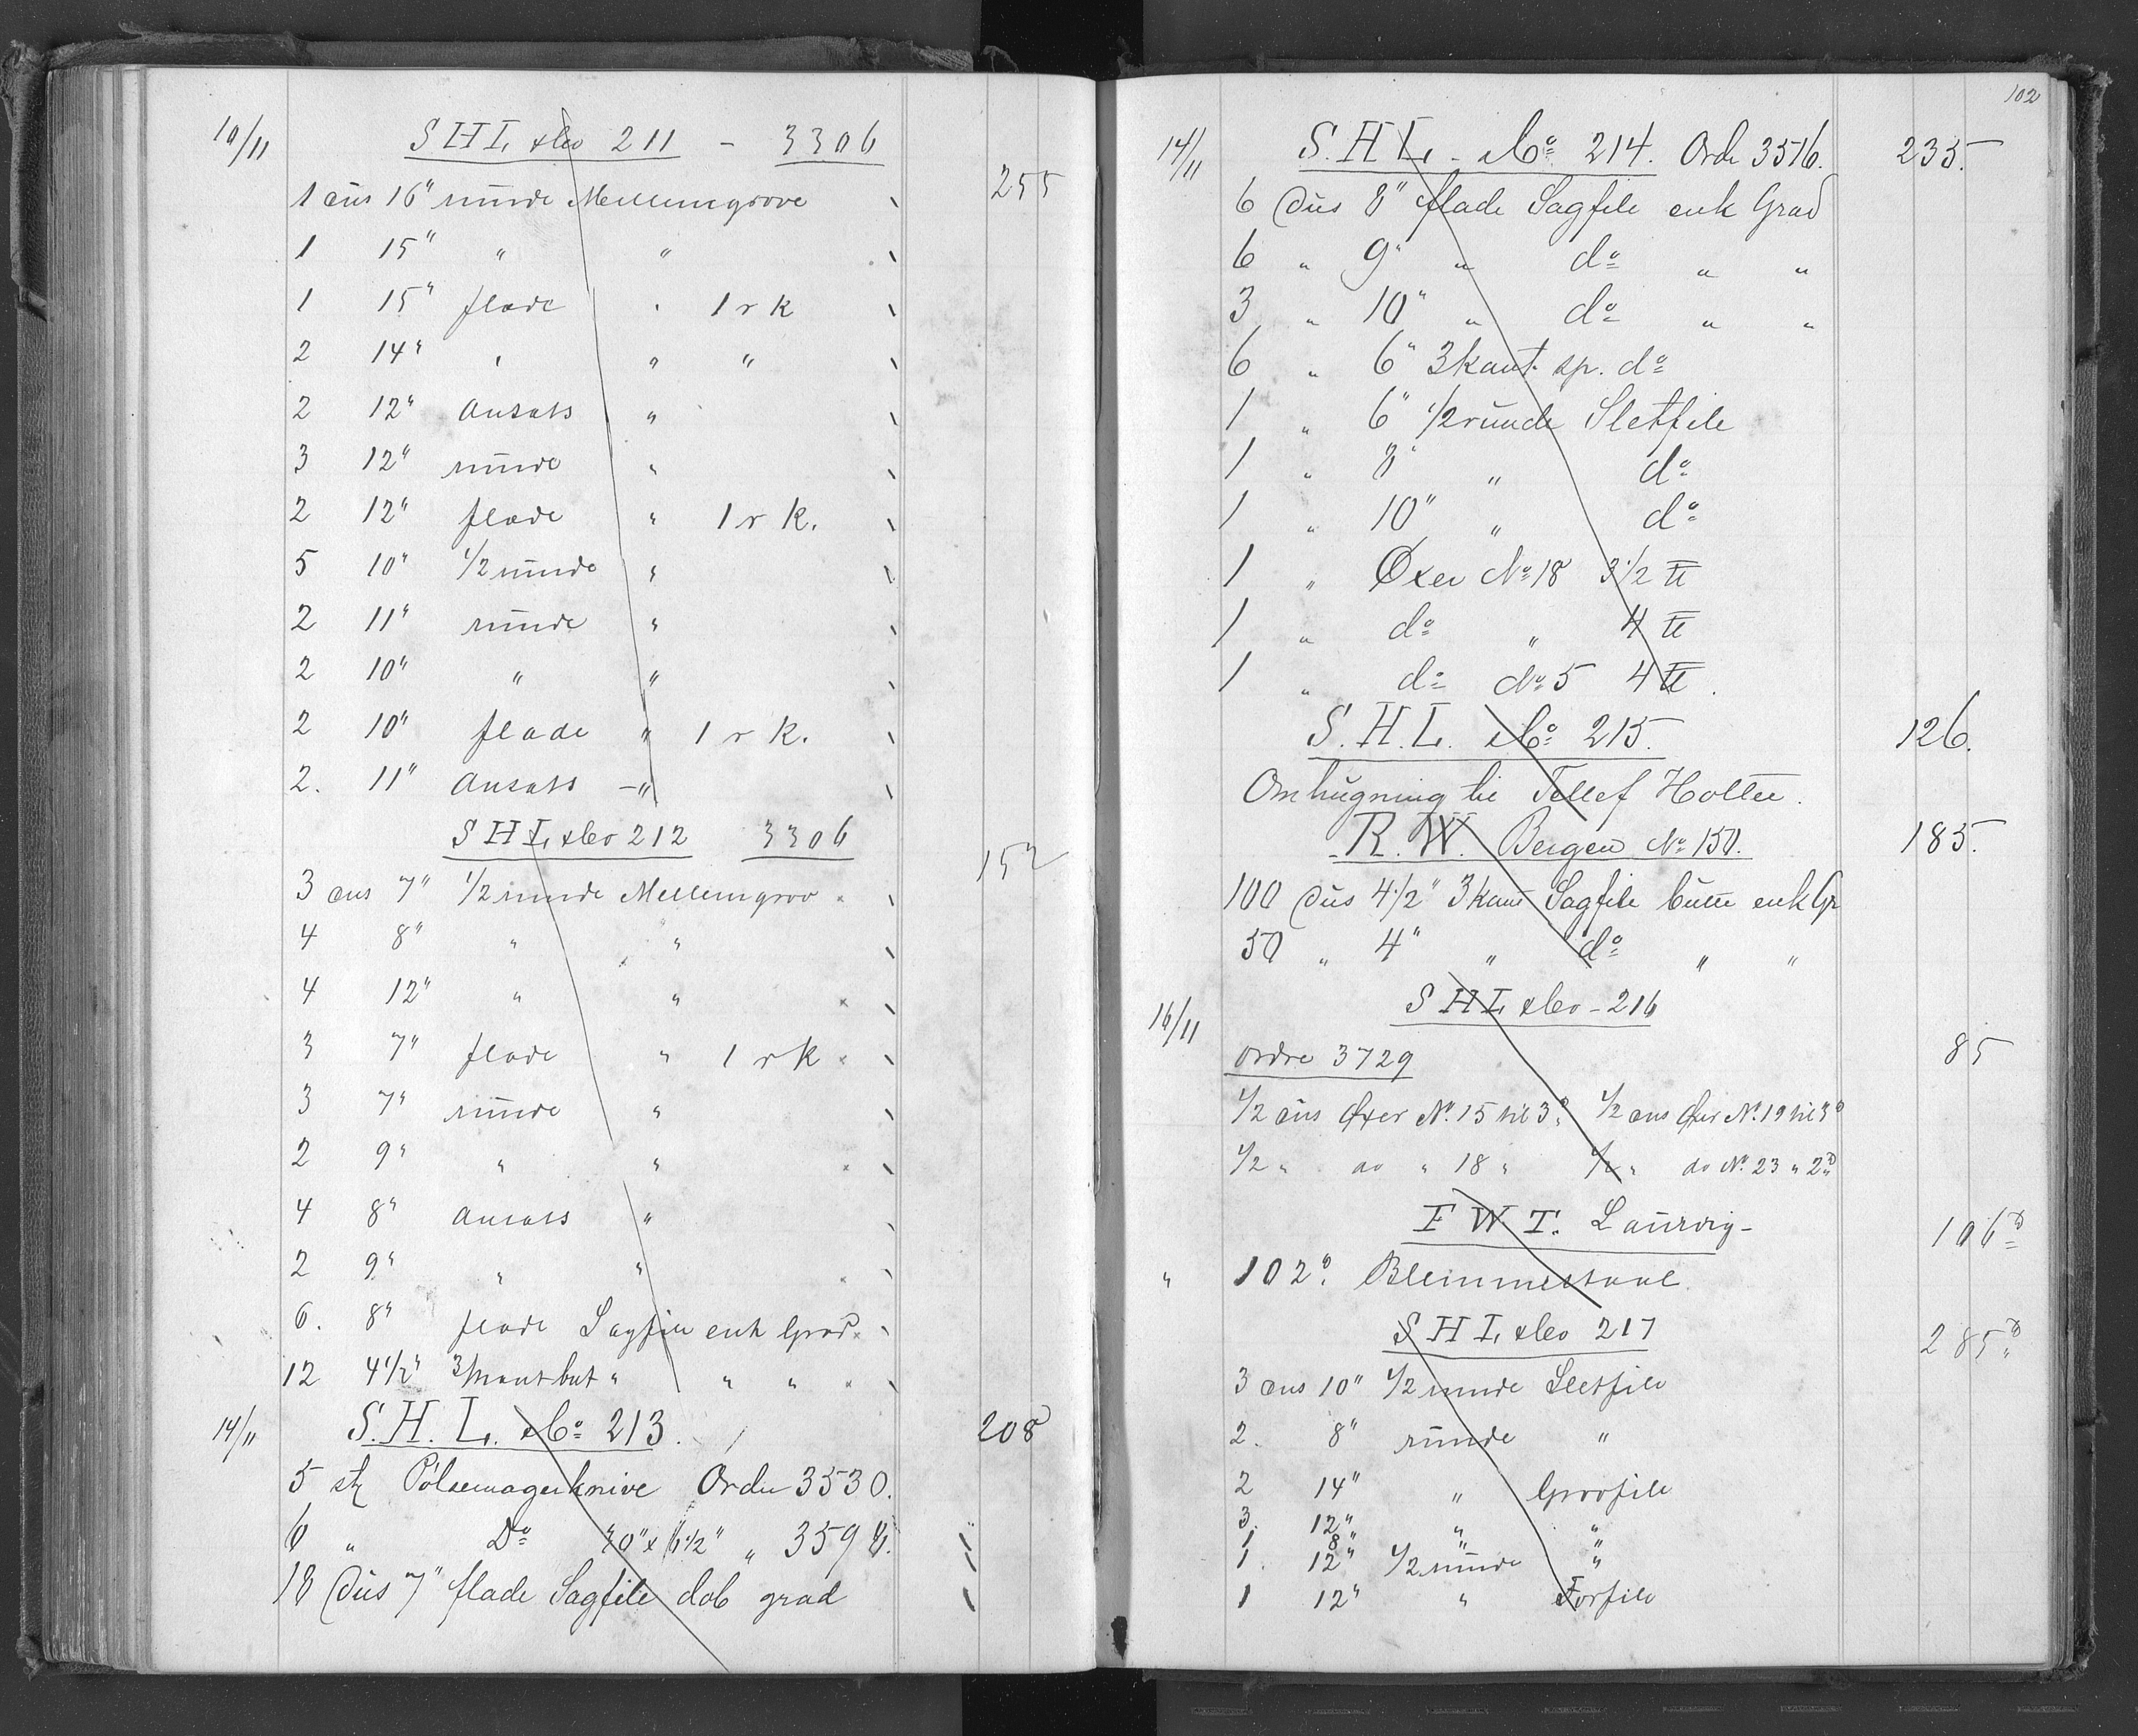 10/11 S H L & Co 211 - 3306
1 dus 16" runde Mellemgrove 255
1 15" " "
1 15" flade " 1 r k
2 14" " " "
2 12" Ansats "
3 12" runde "
2 12" flade " 1 r k.
5 10" 1/2 runde "
2 11" runde "
2 10" " "
2 10" flade " 1 r k.
2. 11" Ansats -"
S H L & Co 212 3306
3 dus 7" 1/2 runde Mellemgrov 152
4 8" " "
4 12" " "
3 7" flade " 1 r k
3 7" runde "
2 9" " "
4 8" Ansats "
2 9" " "
6. 8" flade Sagfile enk Grad.
12 4 1/2" 3kant but " " "
14/11 S. H. L. & Co 213. 208
5 st Pölsemagerknive Ordre 3530.
6 " Do " 359
18 Dus 7" flade Sagfile dob grad
102
14/11 S. H L. & Co 214. Ord. 3516. 235.
6 Dus 8" flade Sagfile enk Grad
6 " 9" " do " "
3 " 10" " do " "
6 " 6" 3kant. sp. do
1 " 6" 1/2 runde Sletfile
1 " 8" " do
1 " 10" " do
1 " Öxer No 18 3 1/2 ℔
1 " do " 4 ℔
1 " do No 5 4 ℔.
S. H. L. & Co 215. 126.
Omhugning til Tellef Holte.
R. W. Bergen No 150. 185.
100 Dus 4 1/2" 3kant Sagfile butte enk Gr
50 " 4" " do " "
16/11 S H L & Co - 216
Ordre 3729 85
1/2 dus Öxer No. 15 til 3 1/2 dus Öxer No. 19 til 3
1/2 " do " 18 " 1/2 " do No. 23 " 2
F W T. Laurvig - 106
" 102 Blemmestaal.
S H L & Co 217 285
3 dus 10" 1/2 runde Sletfile
2. 8" runde "
2 14" " Grovfile
3. 12" " "
1 8" " "
1. 12" 1/2 runde "
1 12" " Forfile